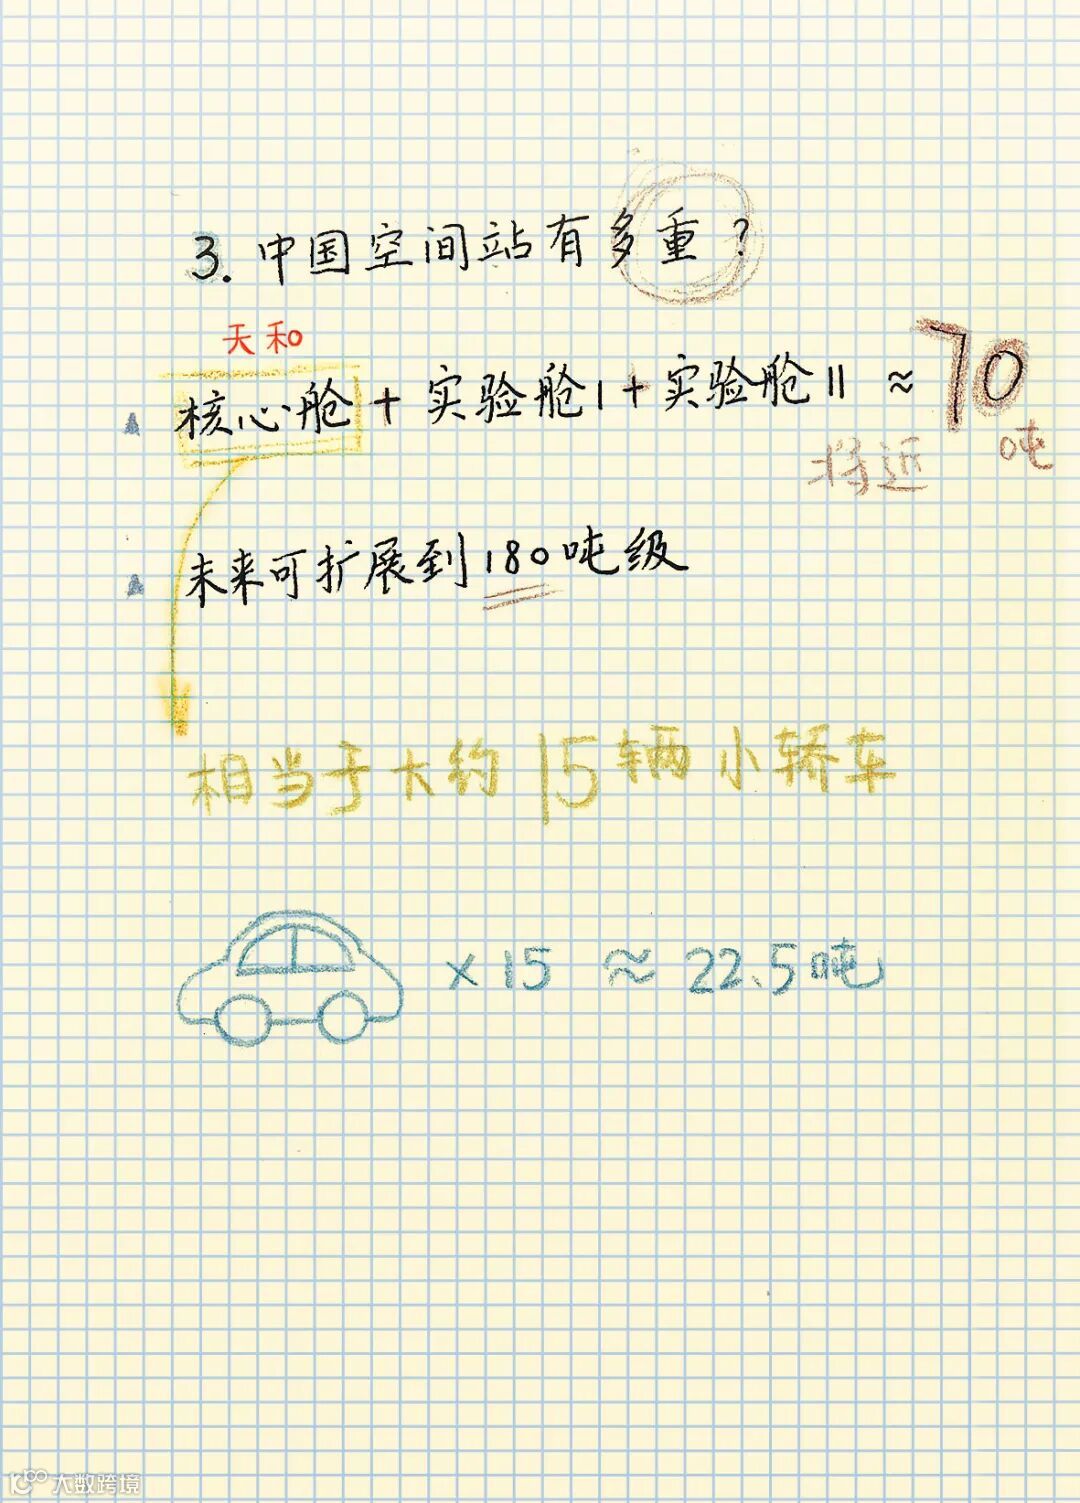 3. 中国空间站有多重?
天和
核心舱 + 实验舱I + 实验舱II ≈ 70
将近
吨
未来可扩展到180吨级
相当于大约15辆小轿车
×15 ≈ 22.5吨
大数跨境